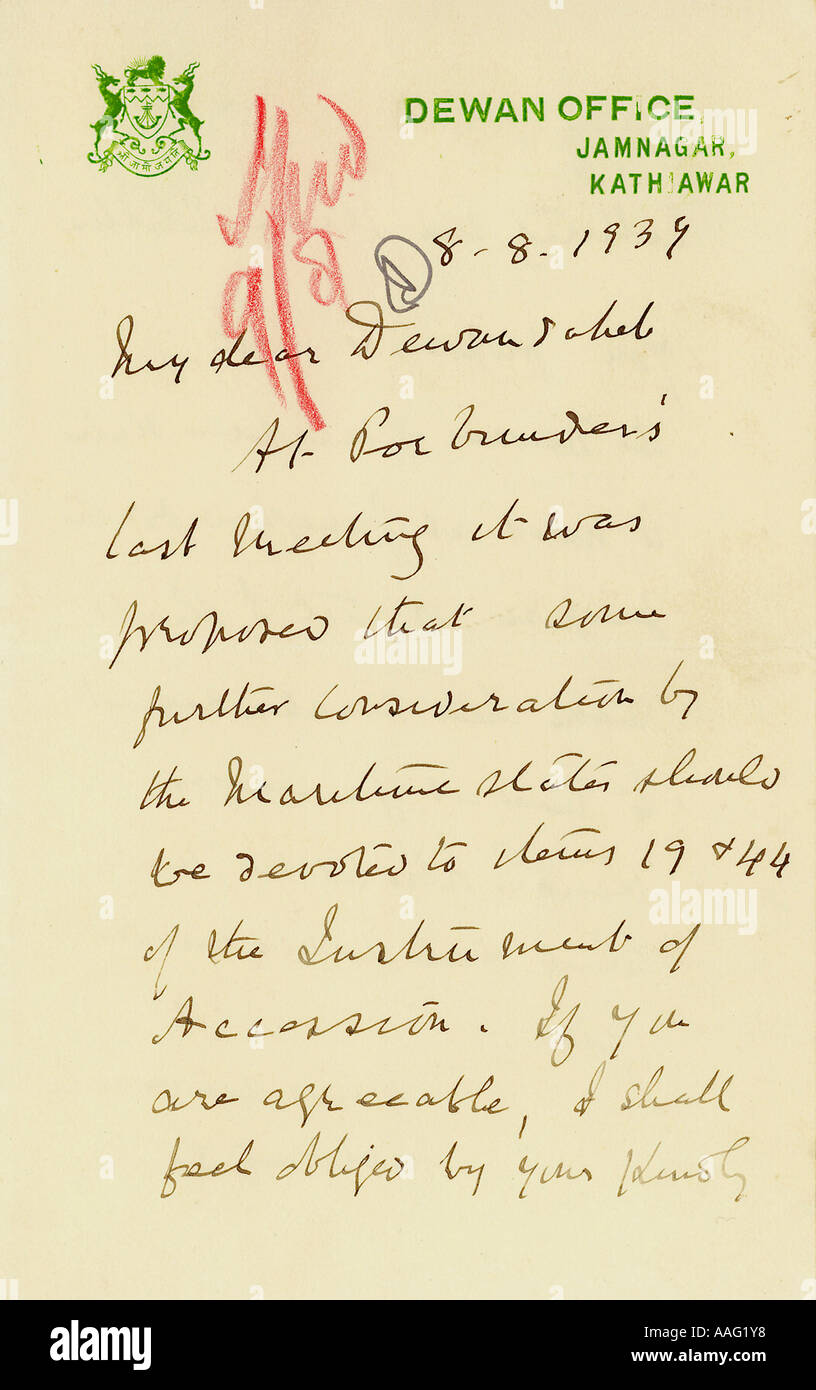 DEWAN OFFICE,
JAMNAGAR,
KATHIAWAR
9/8
8-8-1937
My dear Dewan Saheb
At Porbunder's
last meeting it was
proposed that some
further consideration by
the Maritime states should
be devoted to items 19 & 44
of the Instrument of
Accession. If you
are agreeable, I shall
feel obliged by your kindly
alamy
Image ID: AAG1Y8
www.alamy.com